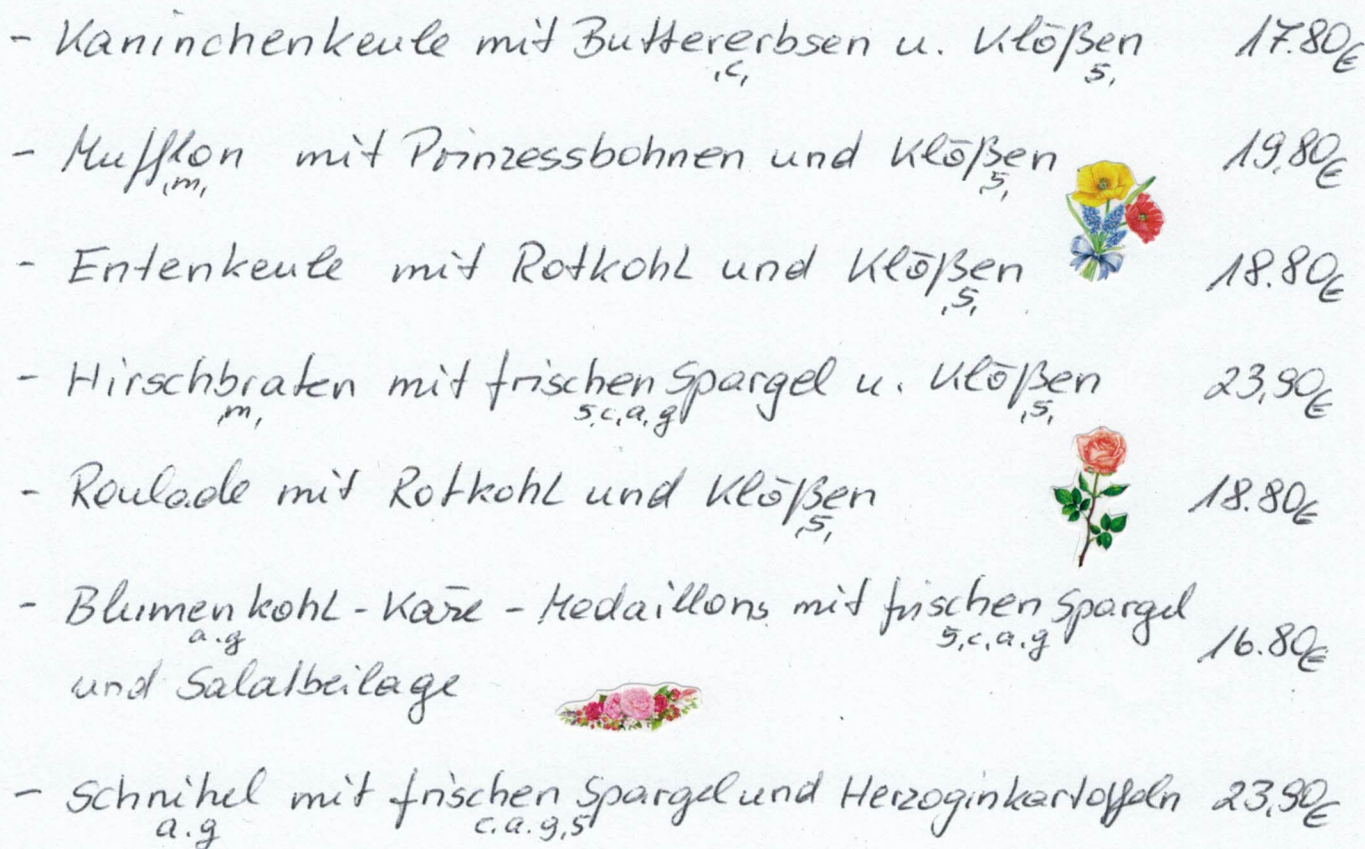 - Kaninchenkeule mit Buttererbsen u. Klößen 17.80€
,c, 5,
- Mufflon mit Prinzessbohnen und Klößen 19,80€
,m, ,5,
- Entenkeule mit Rotkohl und Klößen 18.80€
,5,
- Hirschbraten mit frischen Spargel u. Klößen 23,90€
m, 5,c,a,g ,5,
- Roulade mit Rotkohl und Klößen 18.80€
,5,
- Blumenkohl-Käse-Medaillons mit frischen Spargel
a.g 5,c,a.g 16.80€
und Salatbeilage
- Schnitzel mit frischen Spargel und Herzoginkartoffeln 23,90€
a.g c.a.g,5